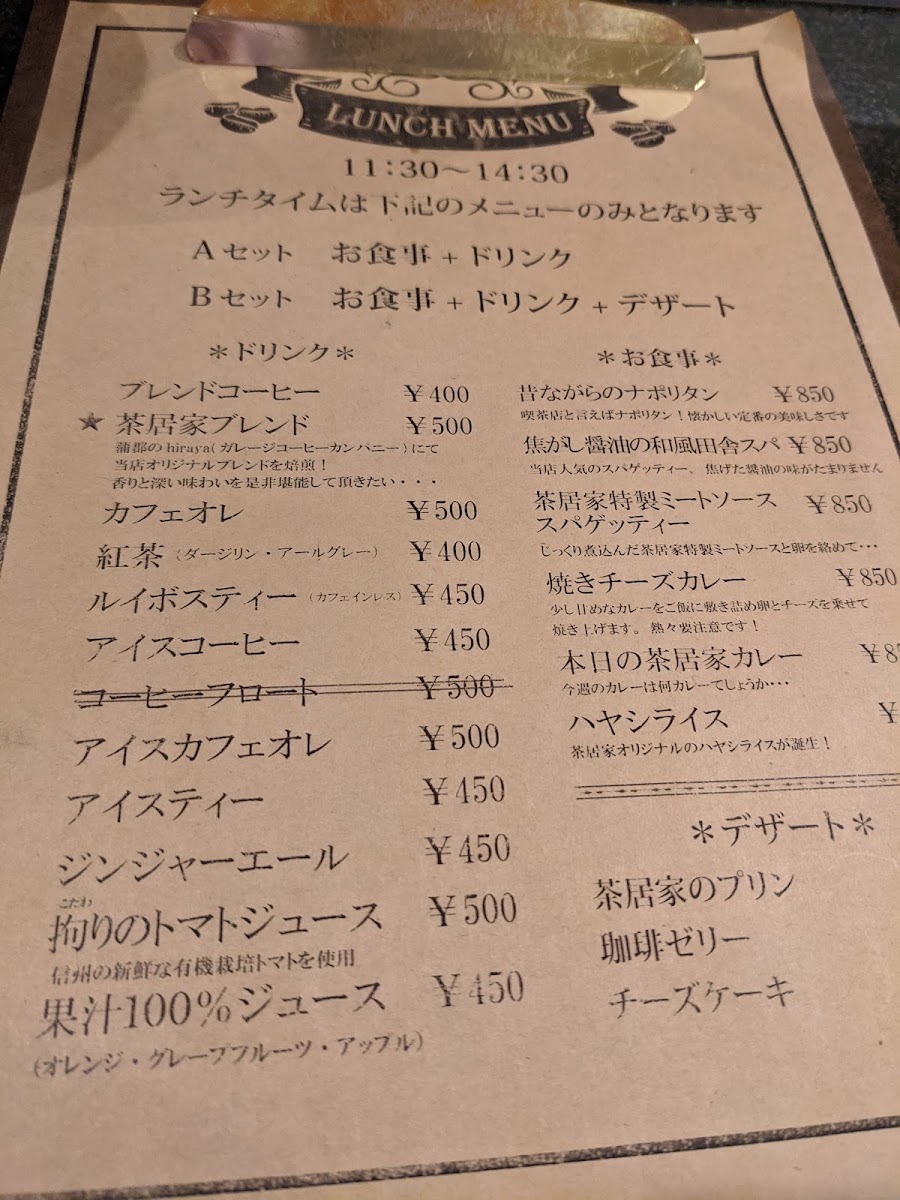 LUNCH MENU
11:30～14:30
ランチタイムは下記のメニューのみとなります
Aセット お食事+ドリンク
Bセット お食事+ドリンク+デザート
＊ドリンク＊
ブレンドコーヒー ¥400
★ 茶居家ブレンド ¥500
蒲郡のhiraya(ガレージコーヒーカンパニー)にて
当店オリジナルブレンドを焙煎！
香りと深い味わいを是非堪能して頂きたい・・・
カフェオレ ¥500
紅茶（ダージリン・アールグレー） ¥400
ルイボスティー（カフェインレス） ¥450
アイスコーヒー ¥450
コーヒーフロート ¥500
アイスカフェオレ ¥500
アイスティー ¥450
ジンジャーエール ¥450
こだわ
拘りのトマトジュース ¥500
信州の新鮮な有機栽培トマトを使用
果汁100%ジュース ¥450
(オレンジ・グレープフルーツ・アップル)
＊お食事＊
昔ながらのナポリタン ¥850
喫茶店と言えばナポリタン！懐かしい定番の美味しさです
焦がし醤油の和風田舎スパ ¥850
当店人気のスパゲッティー、焦げた醤油の味がたまりません
茶居家特製ミートソース ¥850
スパゲッティー
じっくり煮込んだ茶居家特製ミートソースと卵を絡めて・・・
焼きチーズカレー ¥850
少し甘めなカレーをご飯に敷き詰め卵とチーズを乗せて
焼き上げます。熱々要注意です！
本日の茶居家カレー ¥8
今週のカレーは何カレーでしょうか・・・
ハヤシライス ¥
茶居家オリジナルのハヤシライスが誕生！
＊デザート＊
茶居家のプリン
珈琲ゼリー
チーズケーキ